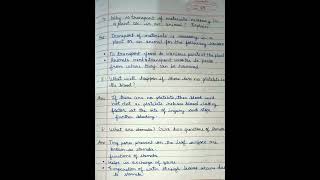 Why is transport of materials necessary in
a plant or in an animal? Explain.
Ans Transport of materials is necessary in a
plant or an animal for the following reasons
To transport food to various parts of the plant
Animals need transport wastes to parts
from where they can be removed
What will happen if there are no platelets in
the blood?
Ans If there are no platelets then blood will
not clot as platelets release blood clotting
factor at the site of injury and stop
further bleeding.
What are stomata? Give two functions of stomata
Ans Tiny pores present on the leaf surface are
known as stomata.
functions of stomata
Helps in exchange of gases
Evaporation of water through leaves occurs due
to stomata